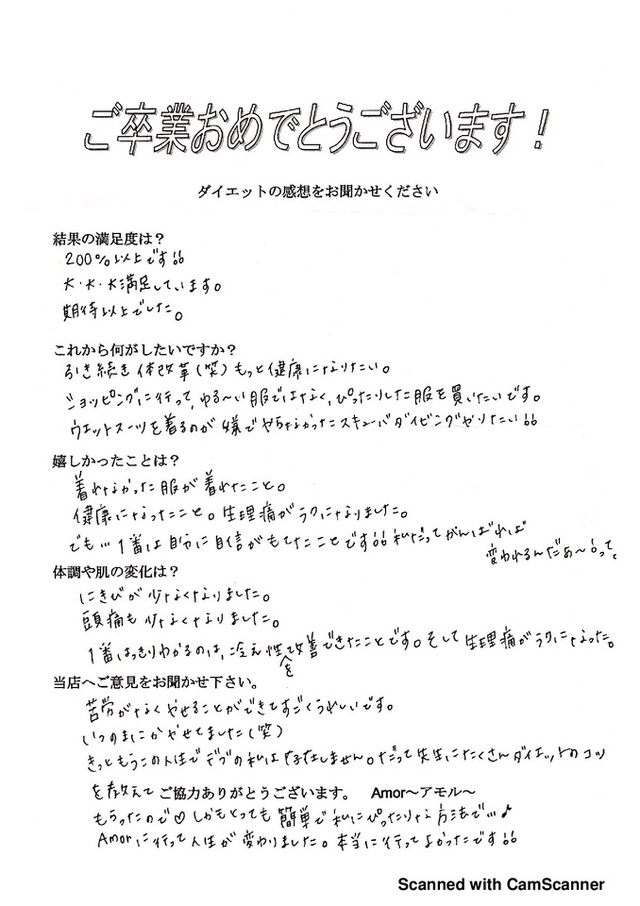 ご卒業おめでとうございます！
ダイエットの感想をお聞かせください
結果の満足度は？
200%以上です!!
大・大・大満足しています。
期待以上でした。
これから何がしたいですか？
引き続き体改革(笑)もっと健康になりたい。
ショッピングに行って、ゆる〜い服ではなく、ぴったりした服を買いたいです。
ウエットスーツを着るのが嫌でやらなかったスキューバダイビングやりたい!!
嬉しかったことは？
着れなかった服が着れたこと。
健康になったこと。生理痛がラクになりました。
でも…1番は自分に自信がもてたことです!!私だってがんばれば
変われるんだぁ〜って。
体調や肌の変化は？
にきびが少なくなりました。
頭痛も少なくなりました。
1番はっきりわかるのは、冷え性を改善できたことです。そして生理痛がラクになった。
当店へご意見をお聞かせ下さい。
苦労がなくやせることができてすごくうれしいです。
いつのまにかやせてました(笑)
きっともうこの人生でデブの私は存在しません。だって先生にたくさんダイエットのコツ
を教えて
ご協力ありがとうございます。 Amor〜アモル〜
もらったので♡しかもとっても簡単で私にぴったりな方法で…♪
Amorに行って人生が変わりました。本当に行ってよかったです!!
Scanned with CamScanner